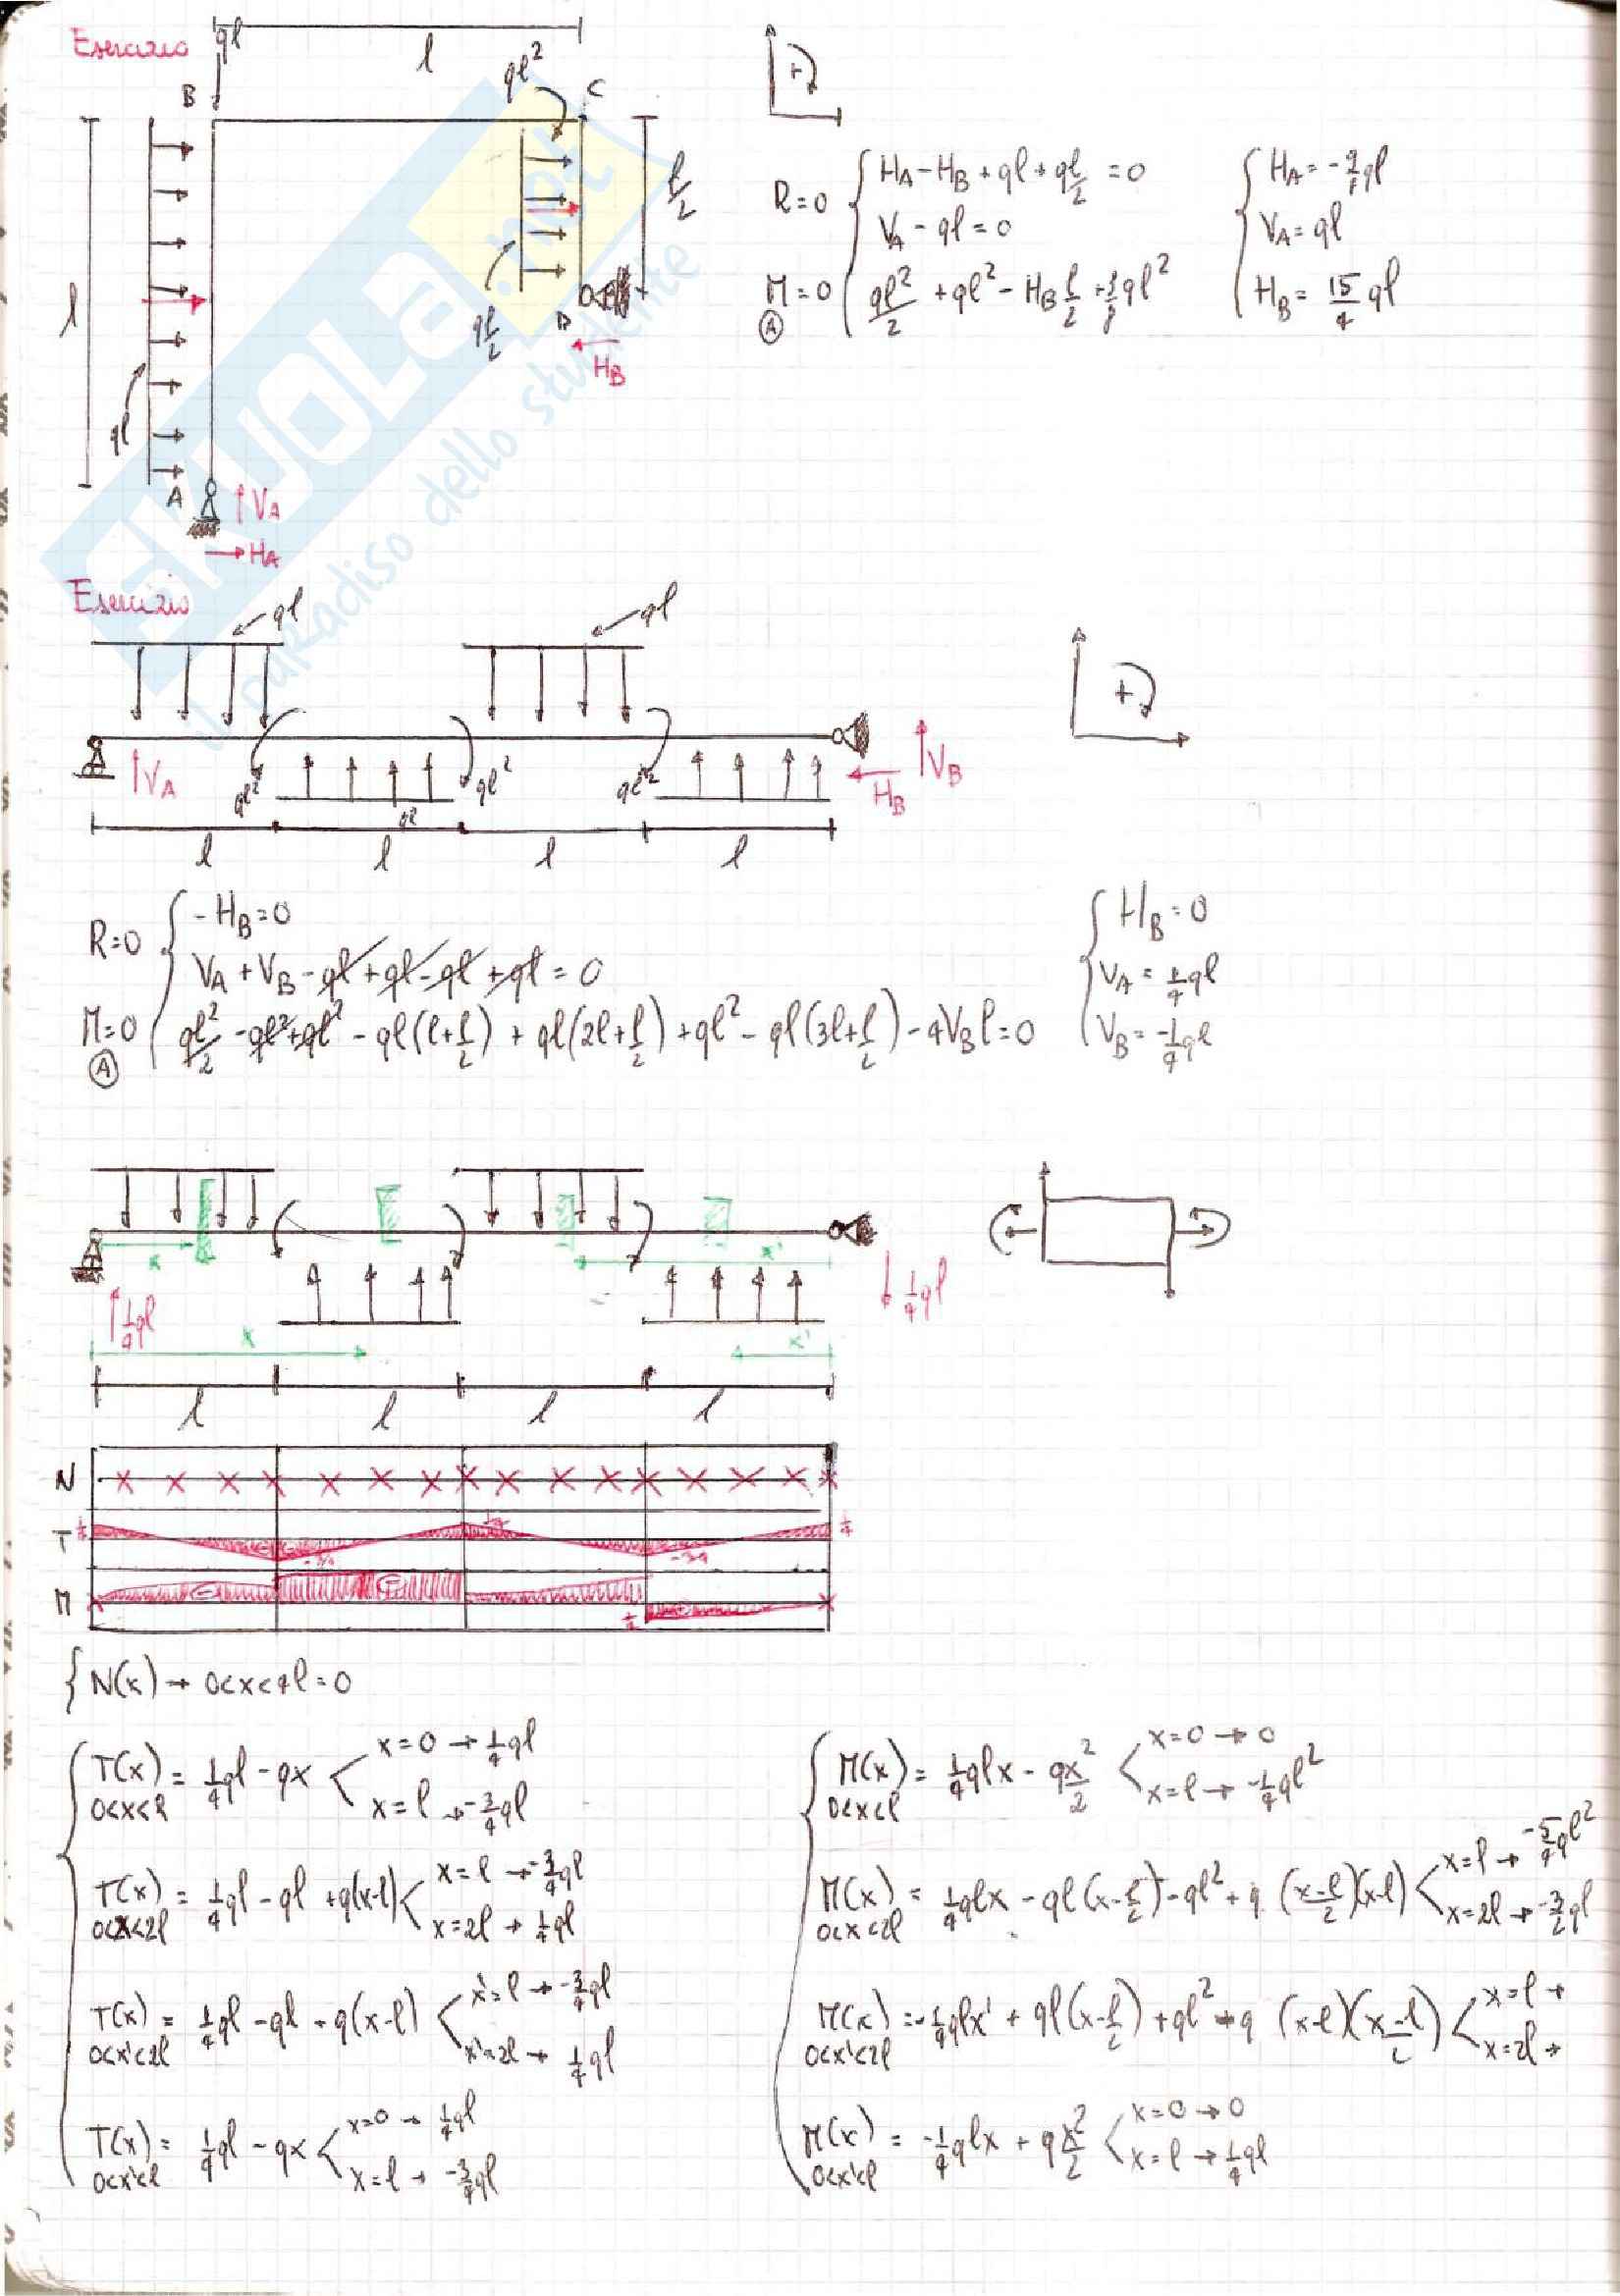 Esercizio
ql
l
ql²
B
C
l
l/2
ql/2
ql
D
H_B
A
V_A
H_A
+
R=0 { H_A - H_B + ql + ql/2 = 0
V_A - ql = 0
M=0 (A) ql²/2 + ql² - H_B l/2 + 3/8 ql²
V_A = ql
H_B = 15/4 ql
SKUOLA.net
il paradiso dello studente
Esercizio
ql
ql
+
V_A
ql²
ql²
ql²
H_B
V_B
l
l
l
l
R=0 { - H_B = 0
V_A + V_B - ql + ql - ql + ql = 0
M=0 (A) ql²/2 - ql² + ql² - ql(l + l/2) + ql(2l + l/2) + ql² - ql(3l + l/2) - 4V_B l = 0
{ H_B = 0
V_A = 1/4 ql
V_B = -1/4 ql
x
x'
1/4 ql
1/4 ql
x
x'
l
l
l
l
N
T
1/4
1/4
-3/4
-3/4
1/4
M
1/4
{ N(x) → 0<x<4l = 0
T(x) 0<x<l = 1/4 ql - qx < x=0 → 1/4 ql
x=l → -3/4 ql
T(x) 0<x<2l = 1/4 ql - ql + q(x-l) < x=l → -3/4 ql
x=2l → 1/4 ql
T(x) 0<x'<2l = 1/4 ql - ql + q(x-l) < x'=l → -3/4 ql
x'=2l → 1/4 ql
T(x) 0<x'<l = 1/4 ql - qx < x=0 → 1/4 ql
x=l → -3/4 ql
M(x) 0<x<l = 1/4 qlx - qx²/2 < x=0 → 0
x=l → -1/4 ql²
M(x) 0<x<2l = 1/4 qlx - ql(x - l/2) - ql² + q (x-l)/2 (x-l) < x=l → -5/4 ql²
x=2l → -3/2 ql
M(x) 0<x'<2l = -1/4 qlx' + ql(x - l/2) + ql² - q (x-l)(x-l)/2 < x=l →
x=2l →
M(x) 0<x'<l = -1/4 qlx + qx²/2 < x=0 → 0
x=l → 1/4 ql